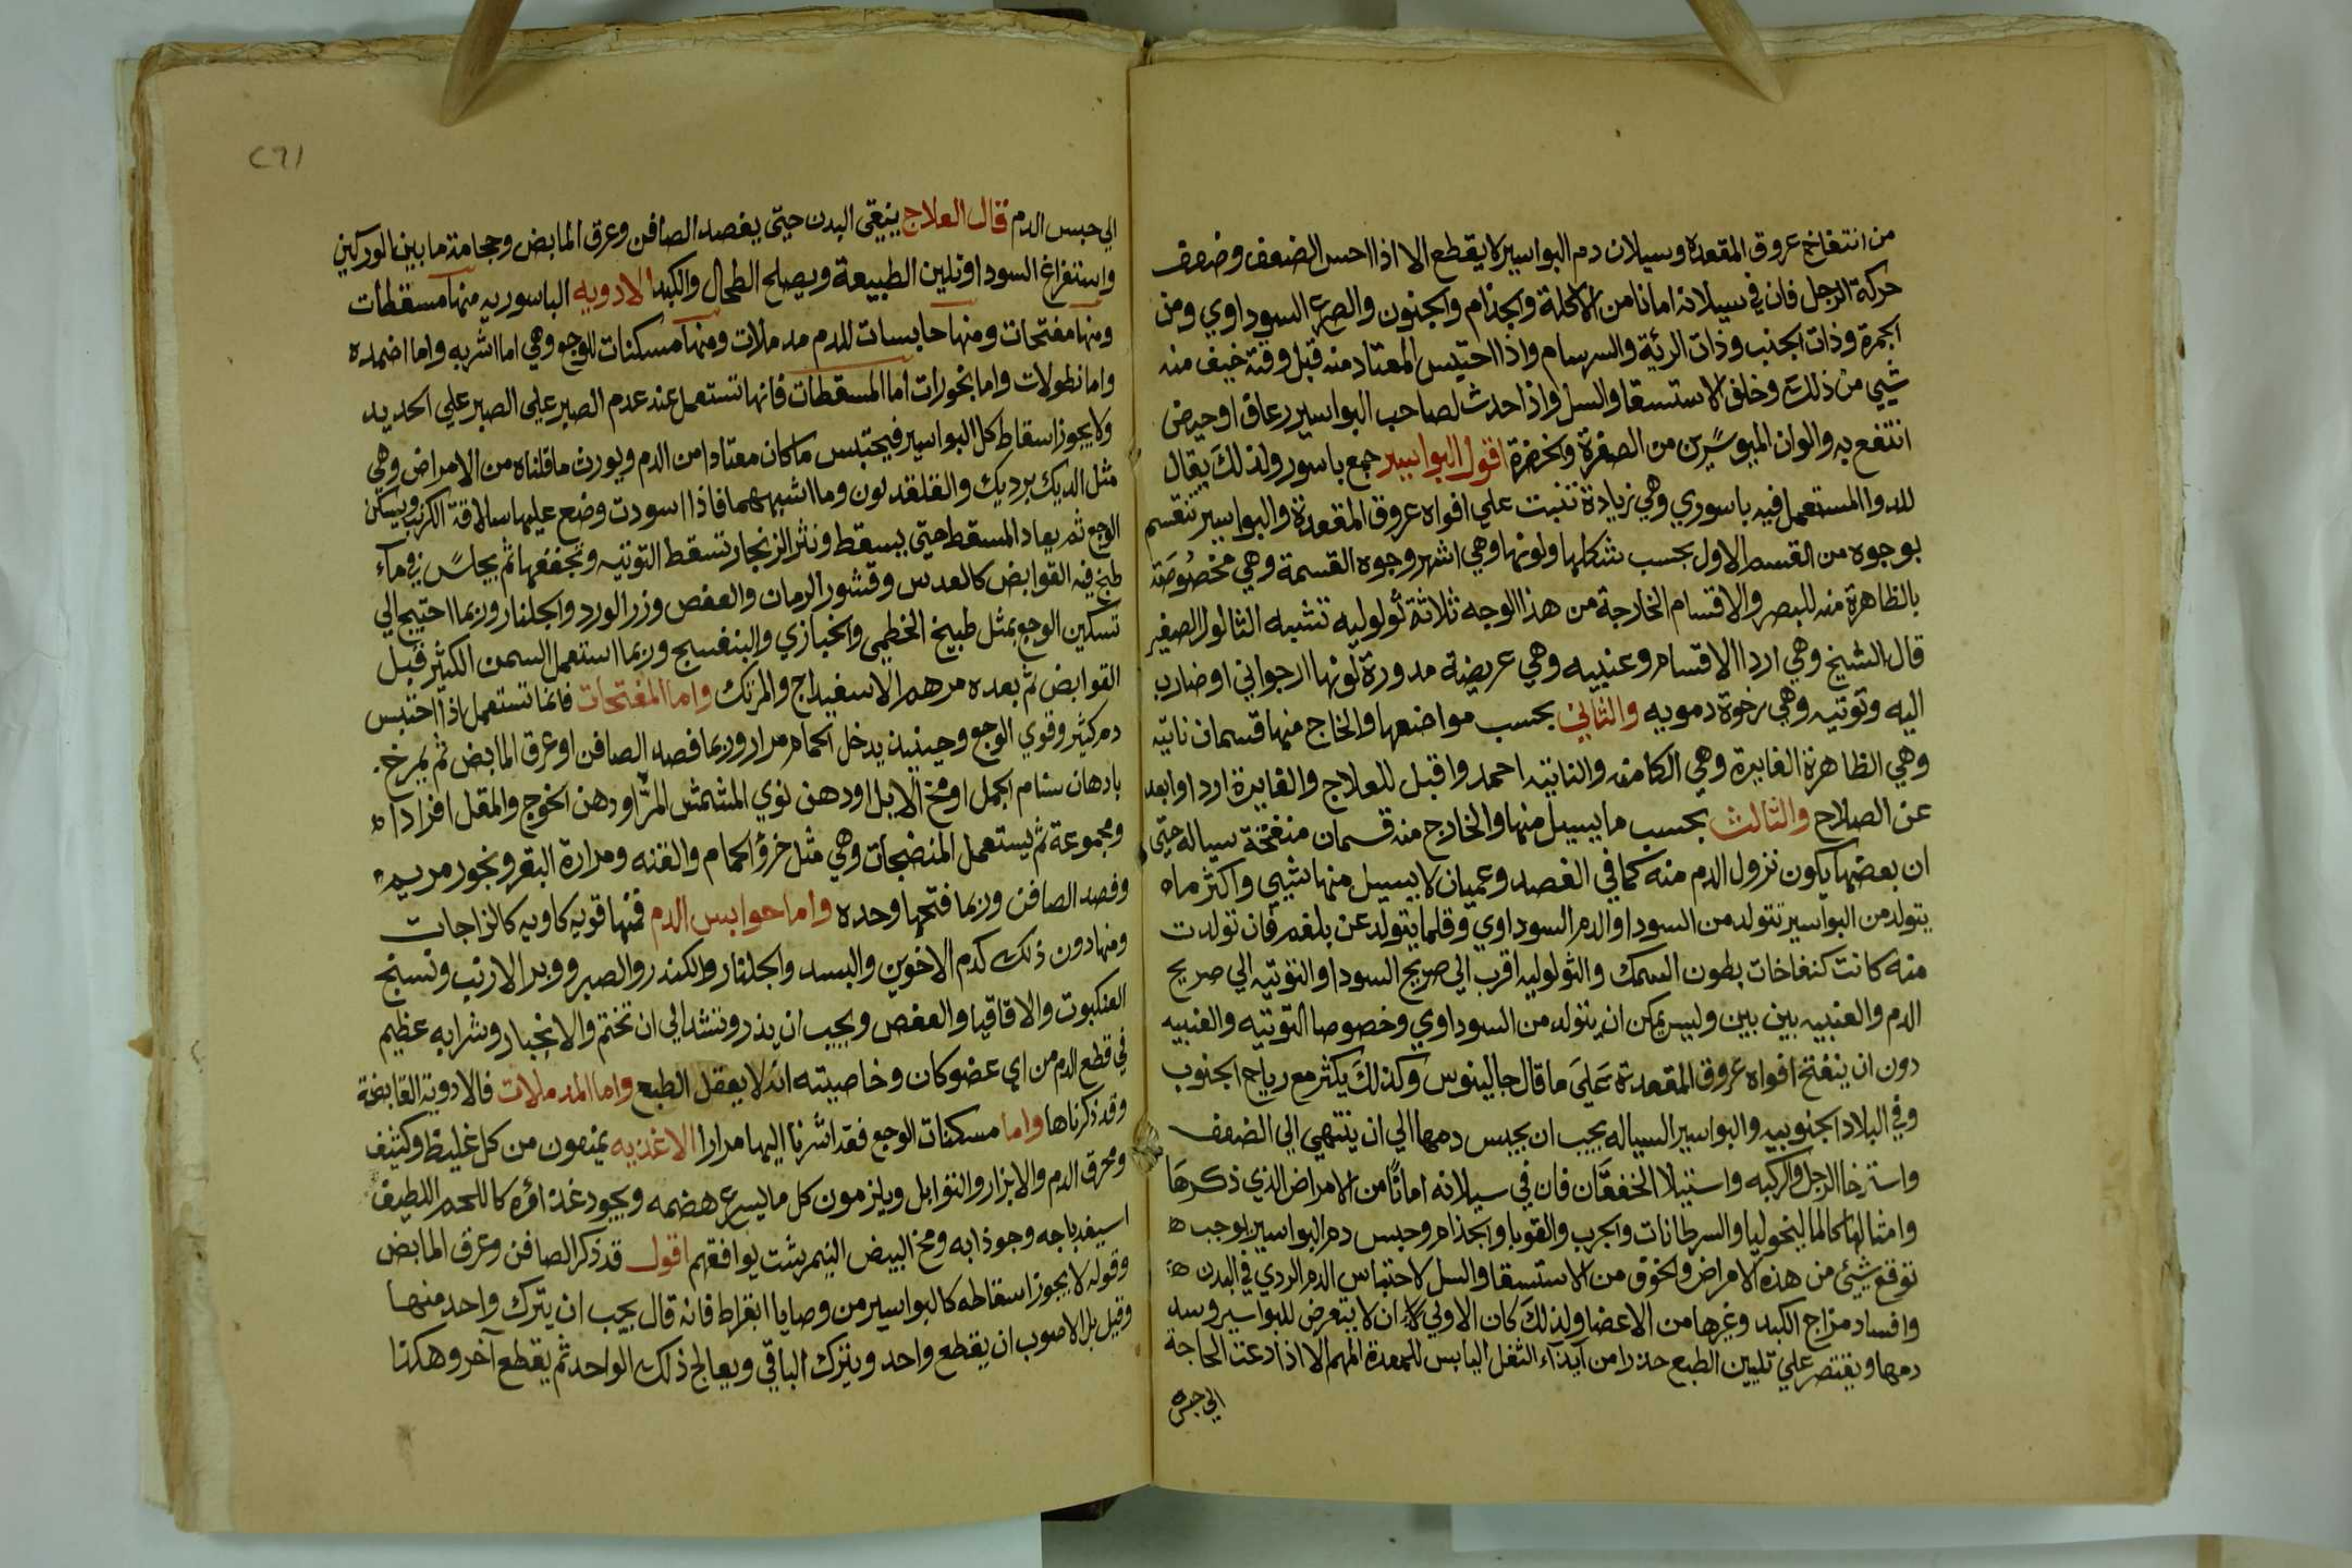 من انتفاخ عروق المقعدة وسيلان دم البواسير لا يقطع الا اذا احس الضعف وضعف
حركة الرجل فان في سيلانه امانا من الاكلة والجذام والجنون والصرع السوداوي ومن
الجمرة وذات الجنب وذات الرئة والسرسام واذا احتبس المعتاد منه قبل وقته خيف منه
شيي من ذلك وخلف الاستسقا والسل واذا حدث لصاحب البواسير رعاف او حيض
انتفع به والوان المبوسرين من الصفرة والخضرة اقول البواسير جمع باسور ولذلك يقال
للدوا المستعمل فيه باسوري وهي زيادة تنبت علي افواه عروق المقعدة والبواسير تنقسم
بوجوه من القسم الاول بحسب شكلها ولونها وهي اشهر وجوه القسمة وهي مخصوصة
بالظاهرة منه للبصر والاقسام الخارجة من هذا الوجه ثلاثة ثولوليه تشبه الثالول الصغير
قال الشيخ وهي اردا الاقسام وعنبيه وهي عريضة مدورة لونها ارجواني او ضارب
اليه وتوتيه وهي رخوة دمويه والثاني بحسب مواضعها والخاج منها قسمان ناتيه
وهي الظاهرة الغايرة وهي الكامنه والناتيه احمد واقبل للعلاج والغايرة اردا وابعد
عن الصلاح والثالث بحسب ما يسيل منها والخارج منه قسمان منفتحة سياله حتي
ان بعضها يكون نزول الدم منه كما في الفصد وعميان لا يسيل منها شيي واكثر ما
يتولد من البواسير تتولد من السودا والدم السوداوي وقلما يتولد عن بلغم فان تولدت
منه كانت كنفاخات بطون السمك والثولوليه اقرب الي صريح السودا والتوتيه الي صريح
الدم والعنبيه بين بين وليس يمكن ان يتولد من السوداوي وخصوصا التوتيه والعنبيه
دون ان ينفتح افواه عروق المقعدة علي ما قال جالينوس وكذلك يكثر مع رياح الجنوب
وفي البلاد الجنوبيه والبواسير السياله يجب ان يحبس دمها الي ان ينتهي الي الضعف
واسترخا الرجل والركبه واستيلا الخفقان فان في سيلانه امانا من الامراض الذي ذكرها
وامثالها كالماليخوليا والسرطانات والجرب والقوبا والجذام وحبس دم البواسير يوجب
توقع شيئ من هذه الامراض والخوف من الاستسقا والسل لاحتباس الدم الردي في البدن
وافساد مزاج الكبد وغيرها من الاعضا ولذلك كان الاولي ان لا يتعرض للبواسير وسد
دمها ويقتصر علي تليين الطبع حذرا من ايذاء الثفل اليابس للمعدة اللهم الا اذا دعت الحاجة
الي حبس
٢٦١
الي حبس الدم قال العلاج ينبغي البدن حتي يفصد الصافن وعرق المابض وحجامة ما بين الوركين
واستفراغ السودا وتليين الطبيعة ويصلح الطحال والكبد الادويه الباسوريه منها مسقطات
ومنها مفتحات ومنها حابسات للدم مدملات ومنها مسكنات للوجع وهي اما اشربه واما اضمده
واما نطولات واما بخورات اما المسقطات فانها تستعمل عند عدم الصبر علي الصبر علي الحديد
ولا يجوز اسقاط كل البواسير فيحتبس ما كان معتادا من الدم ويورث ما قلناه من الامراض وهي
مثل الديك برديك والقلقديون وما اشبههما فاذا اسودت وضع عليها سلاقة الكرنب ويسكن
الوجع ثم يعاد المسقط حتي يسقط ونثر الزنجار تسقط التوتيه وتجففها ثم يجلس في ماء
طبخ فيه القوابض كالعدس وقشور الرمان والعفص وزر الورد والجلنار وربما احتيج الي
تسكين الوجع بمثل طبيخ الخطمي والخبازي والبنفسج وربما استعمل السمن الكثير قبل
القوابض ثم بعده مرهم الاسفيداج والمرتك واما المفتحات فانما تستعمل اذا احتبس
دم كثير وقوي الوجع وحينيذ يدخل الحمام مرارا وربما فصد الصافن او عرق المابض ثم يمرخ
بادهان سنام الجمل او مخ الابل او دهن نوي المشمش المر او دهن الخوخ والمقل افرادا
ومجموعة ثم يستعمل المنضجات وهي مثل خرؤ الحمام والقنه ومرارة البقر وبخور مريم
وفصد الصافن وربما فتحها وحده واما حوابس الدم فمنها قويه كاويه كالزاجات
ومنها دون ذلك كدم الاخوين والبسد والجلنار والكندر والصبر ووبر الارنب ونسيج
العنكبوت والاقاقيا والعفص ويجب ان يذر وتشد الي ان تختم والانجبار وشرابه عظيم
في قطع الدم من اي عضو كان وخاصيته انه لا يعقل الطبع واما المدملات فالادوية القابضة
وقد ذكرناها واما مسكنات الوجع فقد اشرنا اليها مرارا الاغذيه يمنعون من كل غليظ وكثيف
ومحرق الدم والابزار والتوابل ويلزمون كل ما يسرع هضمه ويجود غذاؤه كاللحم اللطيف
اسيفدباجه وجوذابه ومخ البيض النيمرشت يوافقهم اقول قد ذكر الصافن وعرق المابض
وقوله لا يجوز اسقاطه كالبواسير من وصايا ابقراط فانه قال يجب ان يترك واحد منها
وقيل بل الاصوب ان يقطع واحد ويترك الباقي ويعالج ذلك الواحد ثم يقطع آخر وهكذا